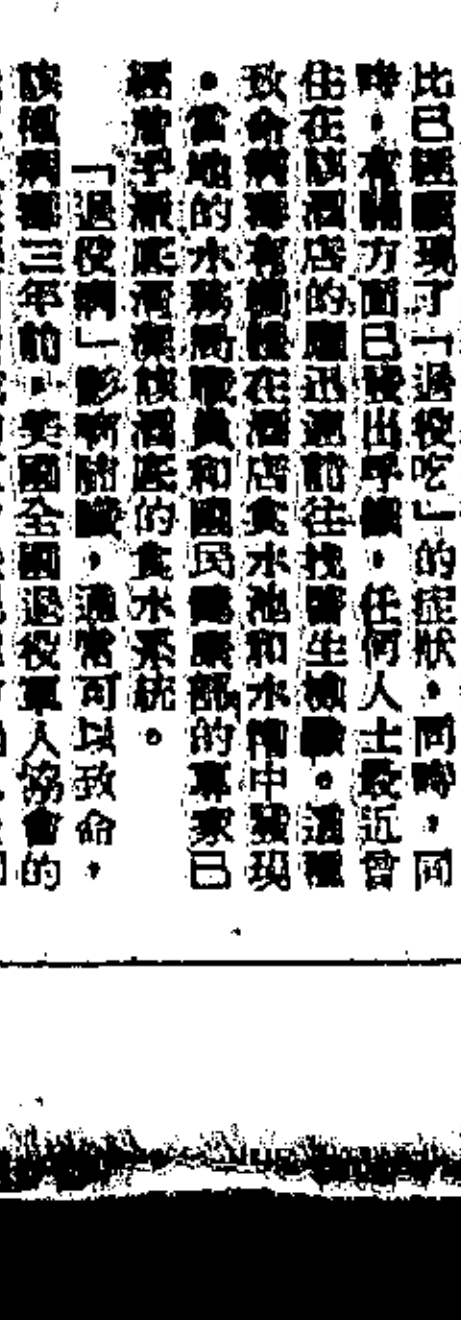 比已經顯現了「退役吃」的症狀。同時,同
時,有關方面已發出呼籲,任何人士最近曾
住在該酒店的應迅速前往找醫生檢驗。這種
致命病毒有酒店食水池和水中發現
。當地的水務局職員和國民健康部的專家已
經曾乎底清該酒底的食水系統。
「退役病」影響肺,通常可以致命,
該種病毒三年前,美國全國退役軍人協會的